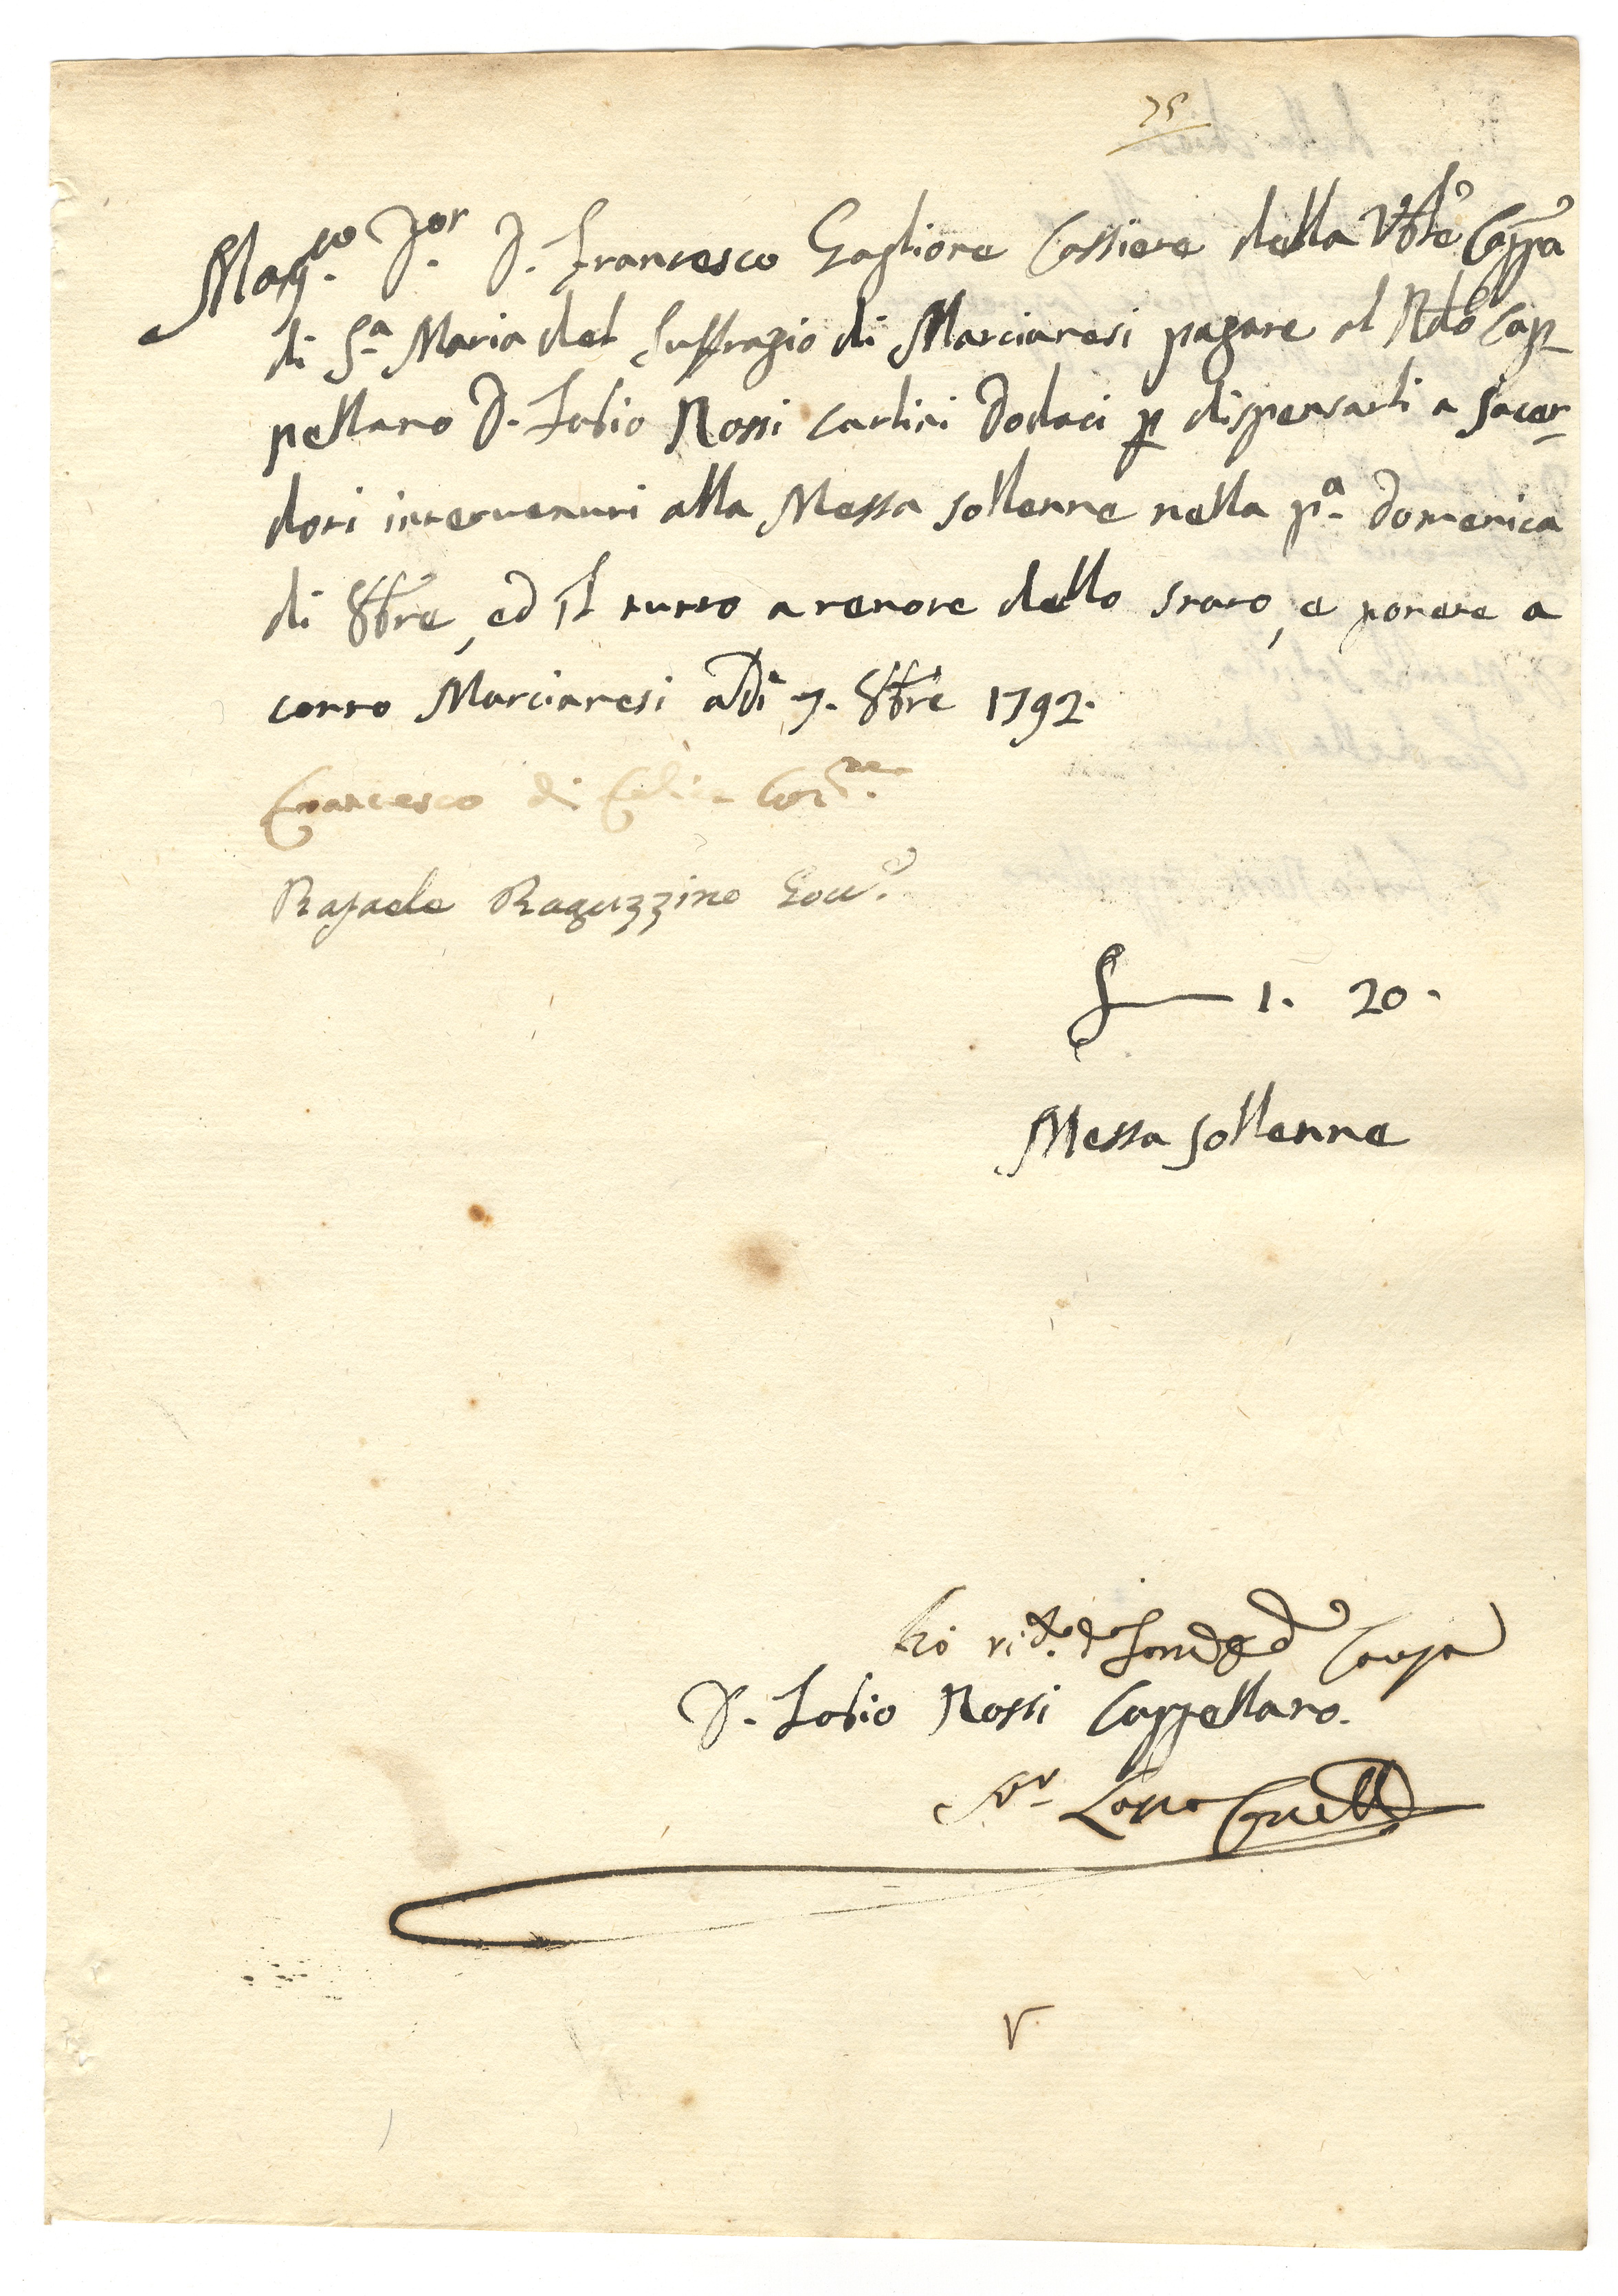 75
Mag.co D.or D. Francesco Gaglione Cassiere della Ven.le Cappa
di S.a Maria del Suffragio di Marcianesi pagate al Rdo Cap=
pellano D. Fabio Rossi carlini dodeci p dispensarli a Sacer=
doti intervenuti alla Messa sollenne nella p.a domenica
di 8bre, ed il tutto a tenore dello stato, e ponete a
conto Marcianesi a dì 7. 8bre 1792.
Francesco di
Rafaele Raguzzino Gov.e
1. 20.
Messa sollenne
D. Fabio Rossi Cappellano.